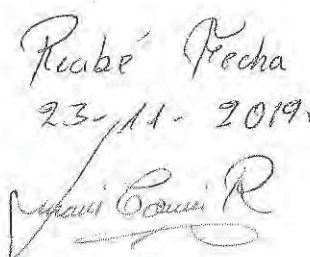 Recibé Fecha
23-11-2019.
R